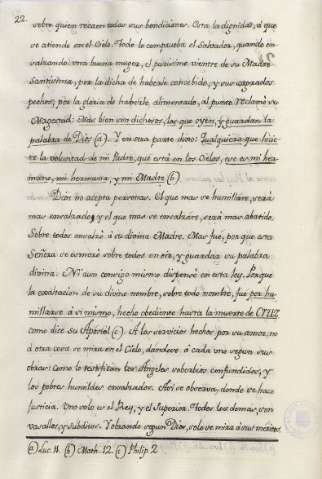 22.
sobre quien recaen todas sus bendiciones. Esta la dignidad, á que
se atiende en el Cielo. Todo lo comprueba el Salvador, quando en-
salzando una buena muger, el purisimo vientre de su Madre
Santisima, por la dicha de haberle concebido, y sus sagrados
pechos, por la gloria de haberle alimentado, al punto reclamó su
Magestad: Mas bien son dichosos, los que oyen, y guardan la
palabra de Dios (a). Y en otra parte dixo: Qualquiera que hicie-
re la voluntad de mi Padre, que está en los Cielos, ese es mi her-
mano, mi hermana, y mi Madre (b).
Dios no acepta personas. El que mas se humillare, será
mas ensalzado; y el que mas se ensalzare, será mas abatido.
Sobre todos ensalzó á su divina Madre. Mas fué, por que esta
Señora se esmeró sobre todos en oír, y guardar su palabra
divina. Ni aun consigo mismo dispensó en esta ley. Porque
la exaltacion de su divino nombre, sobre todo nombre, fué por hu-
millarse á sí mismo, hecho obediente hasta la muerte de Cruz,
como dice su Apóstol (c). A los servicios hechos por su amor, no
á otra cosa se mira en el Cielo, dandose á cada uno segun sus
obras: como lo testifican los Angeles soberbios confundidos, y
los pobres humildes ensalzados. Asi se observa, donde se hace
justicia. Uno solo es el Rey, y el Superior. Todos los demas, son
vasallos, y subditos. Y obrando segun Dios, solo se mira á sus méritos.
(a) Luc. 11. (b) Math. 12. (c) Philip. 2